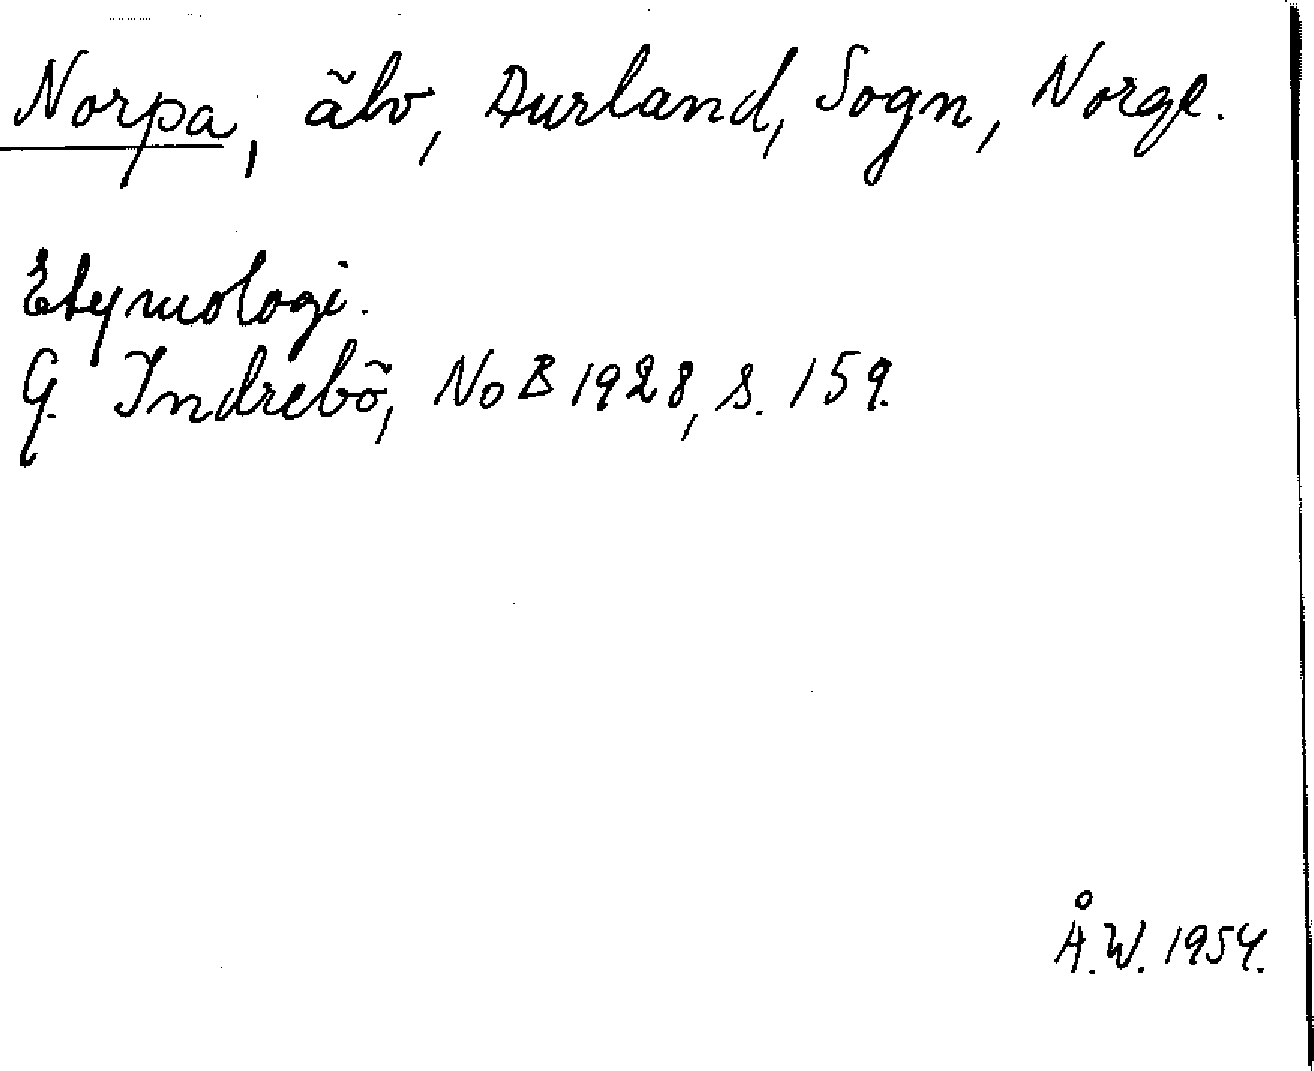 Norpa, älv, Aurland, Sogn, Norge.
Etymologi.
G. Indrebö, NoB 1928, s. 159.
Å.W. 1954.